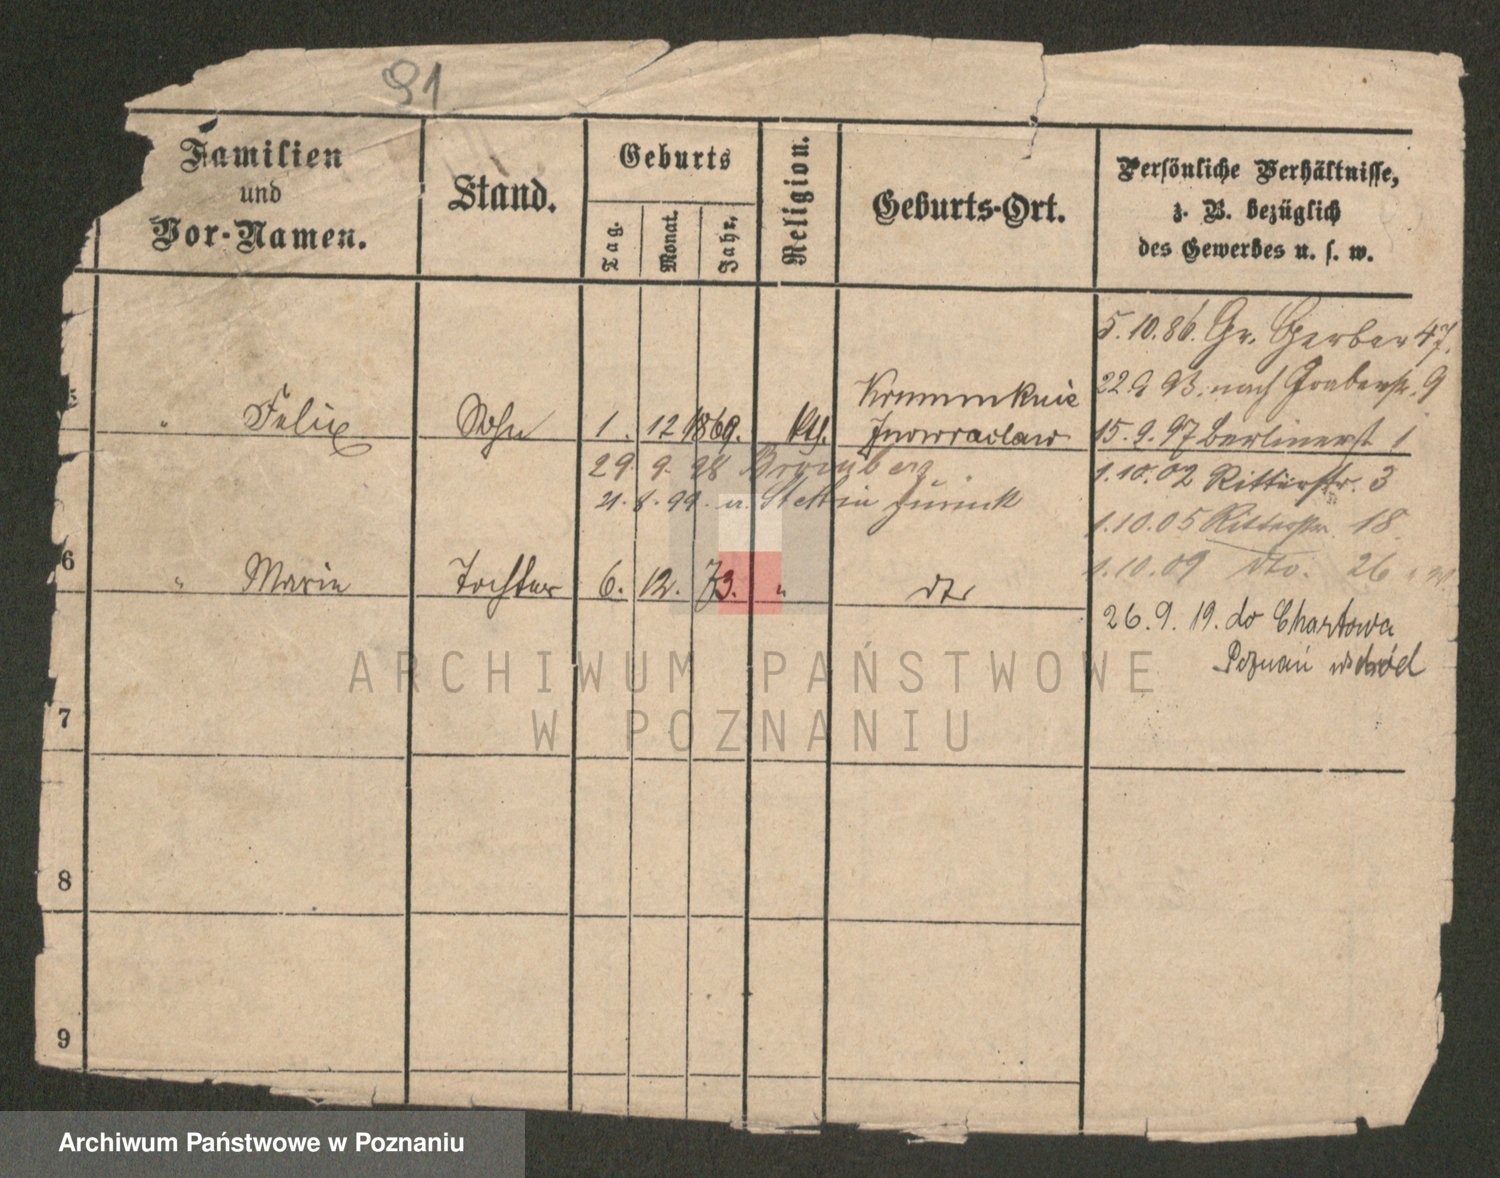 91
Familien
und
Vor-Namen.
Stand.
Geburts
Tag.
Monat.
Jahr.
Religion.
Geburts-Ort.
Persönliche Verhältnisse,
z. B. bezüglich
des Gewerbes u. s. w.
5.10.86. Gr. Gerber 47.
22.9 93. nach Grabenstr. 9
15.9.97 Berlinerst 1
1.10.02 Ritterstr. 3
1.10.05 Ritterstr. 18.
1.10.09 dto. 26
26.9.19. do Chartowa
Poznań
" Felix Sohn 1. 12 1869. kth. Krummknie
Inowraclaw
29. 9. 98 Bromberg
21.8.99. v. Stettin zurück
6 " Marie Tochter 6. 12. 73. " dto
7
8
9
ARCHIWUM PAŃSTWOWE
W POZNANIU
Archiwum Państwowe w Poznaniu